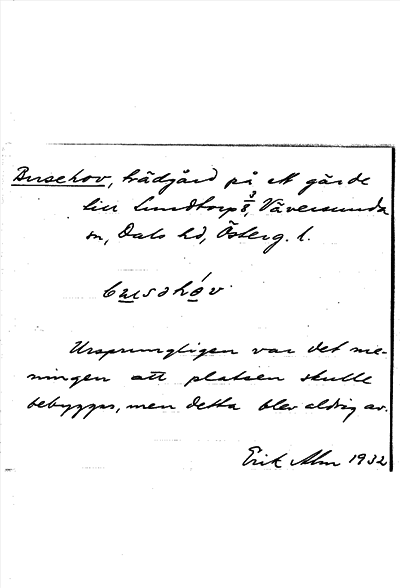 Busehov, trädgård på ett gärde
till Lundtorp 3/8, Väversunda
sn, Dals hd, Österg. l.
Ursprungligen var det me-
ningen att platsen skulle
bebyggas, men detta blev aldrig av.
Erik Alm 1932